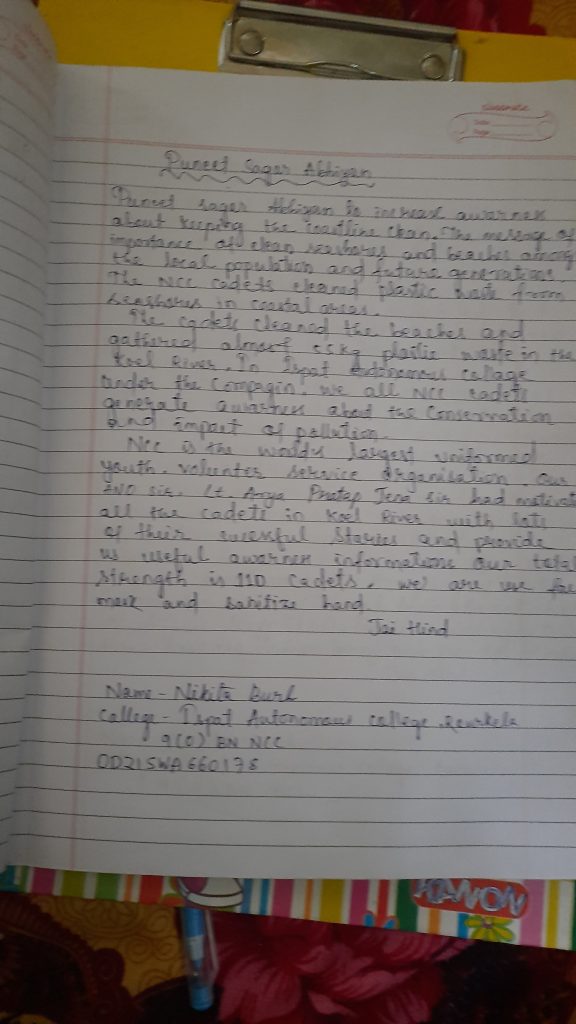 Classmate
Date
Page
Puneet Sagar Abhiyan
Puneet sagar Abhiyan to increase awarness
about keeping the coastline clean. The message of
importance of clean seashores and beaches among
the local population and future generations.
The NCC cadets cleaned plastic waste from
seashores in coastal areas.
The cadets cleaned the beaches and
gathered almost 55kg plastic waste in the
Koel River. In Ispat Autonomous collage
under the Compagin. we all NCC cadets
generate awarness about the Conservation
and impact of pollution.
NCC is the world's largest uniformed
youth. volunter service organisation. our
ANO sir. Lt. Arya Pratap Jena sir had motivat
all the cadets in Koel River with lots
of their sucessful stories and provide
us useful awarnes informations our total
strength is 110 cadets. we are use fac
mask and sanitize hand
Jai Hind
Name - Nikita
College - Ispat Autonomous college, Rourkela
9(O) BN NCC
OD21SWA660178
HANON